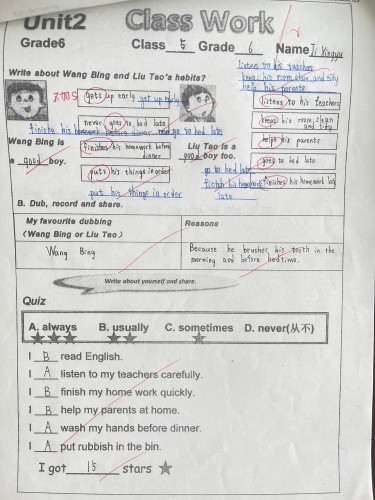 Unit2 Class Work
Grade6 Class 5 Grade 6 Name Ji Xingyu
Write about Wang Bing and Liu Tao's habits?
listens to his teachers
keep his room clean and tidy
help his parents
gets up early get up early
listens to his teachers
never goes to bed late
keeps his room clean and tidy
finishs his homework before dinner go to bed late
helps his parents
Wang Bing is
finishes his homework before dinner
Liu Tao is a
a good boy.
good boy too.
goes to bed late
puts his things in order
go to bed late
finish his homework late
finishes his homework late
put his things in order
B. Dub, record and share.
My favourite dubbing
(Wang Bing or Liu Tao)
Reasons
Wang Bing
Because he brushes his teeth in the
morning and before bedtime.
Write about yourself and share.
Quiz
A. always B. usually C. sometimes D. never(从不)
I B read English.
I A listen to my teachers carefully.
I B finish my home work quickly.
I B help my parents at home.
I A wash my hands before dinner.
I A put rubbish in the bin.
I got 15 stars